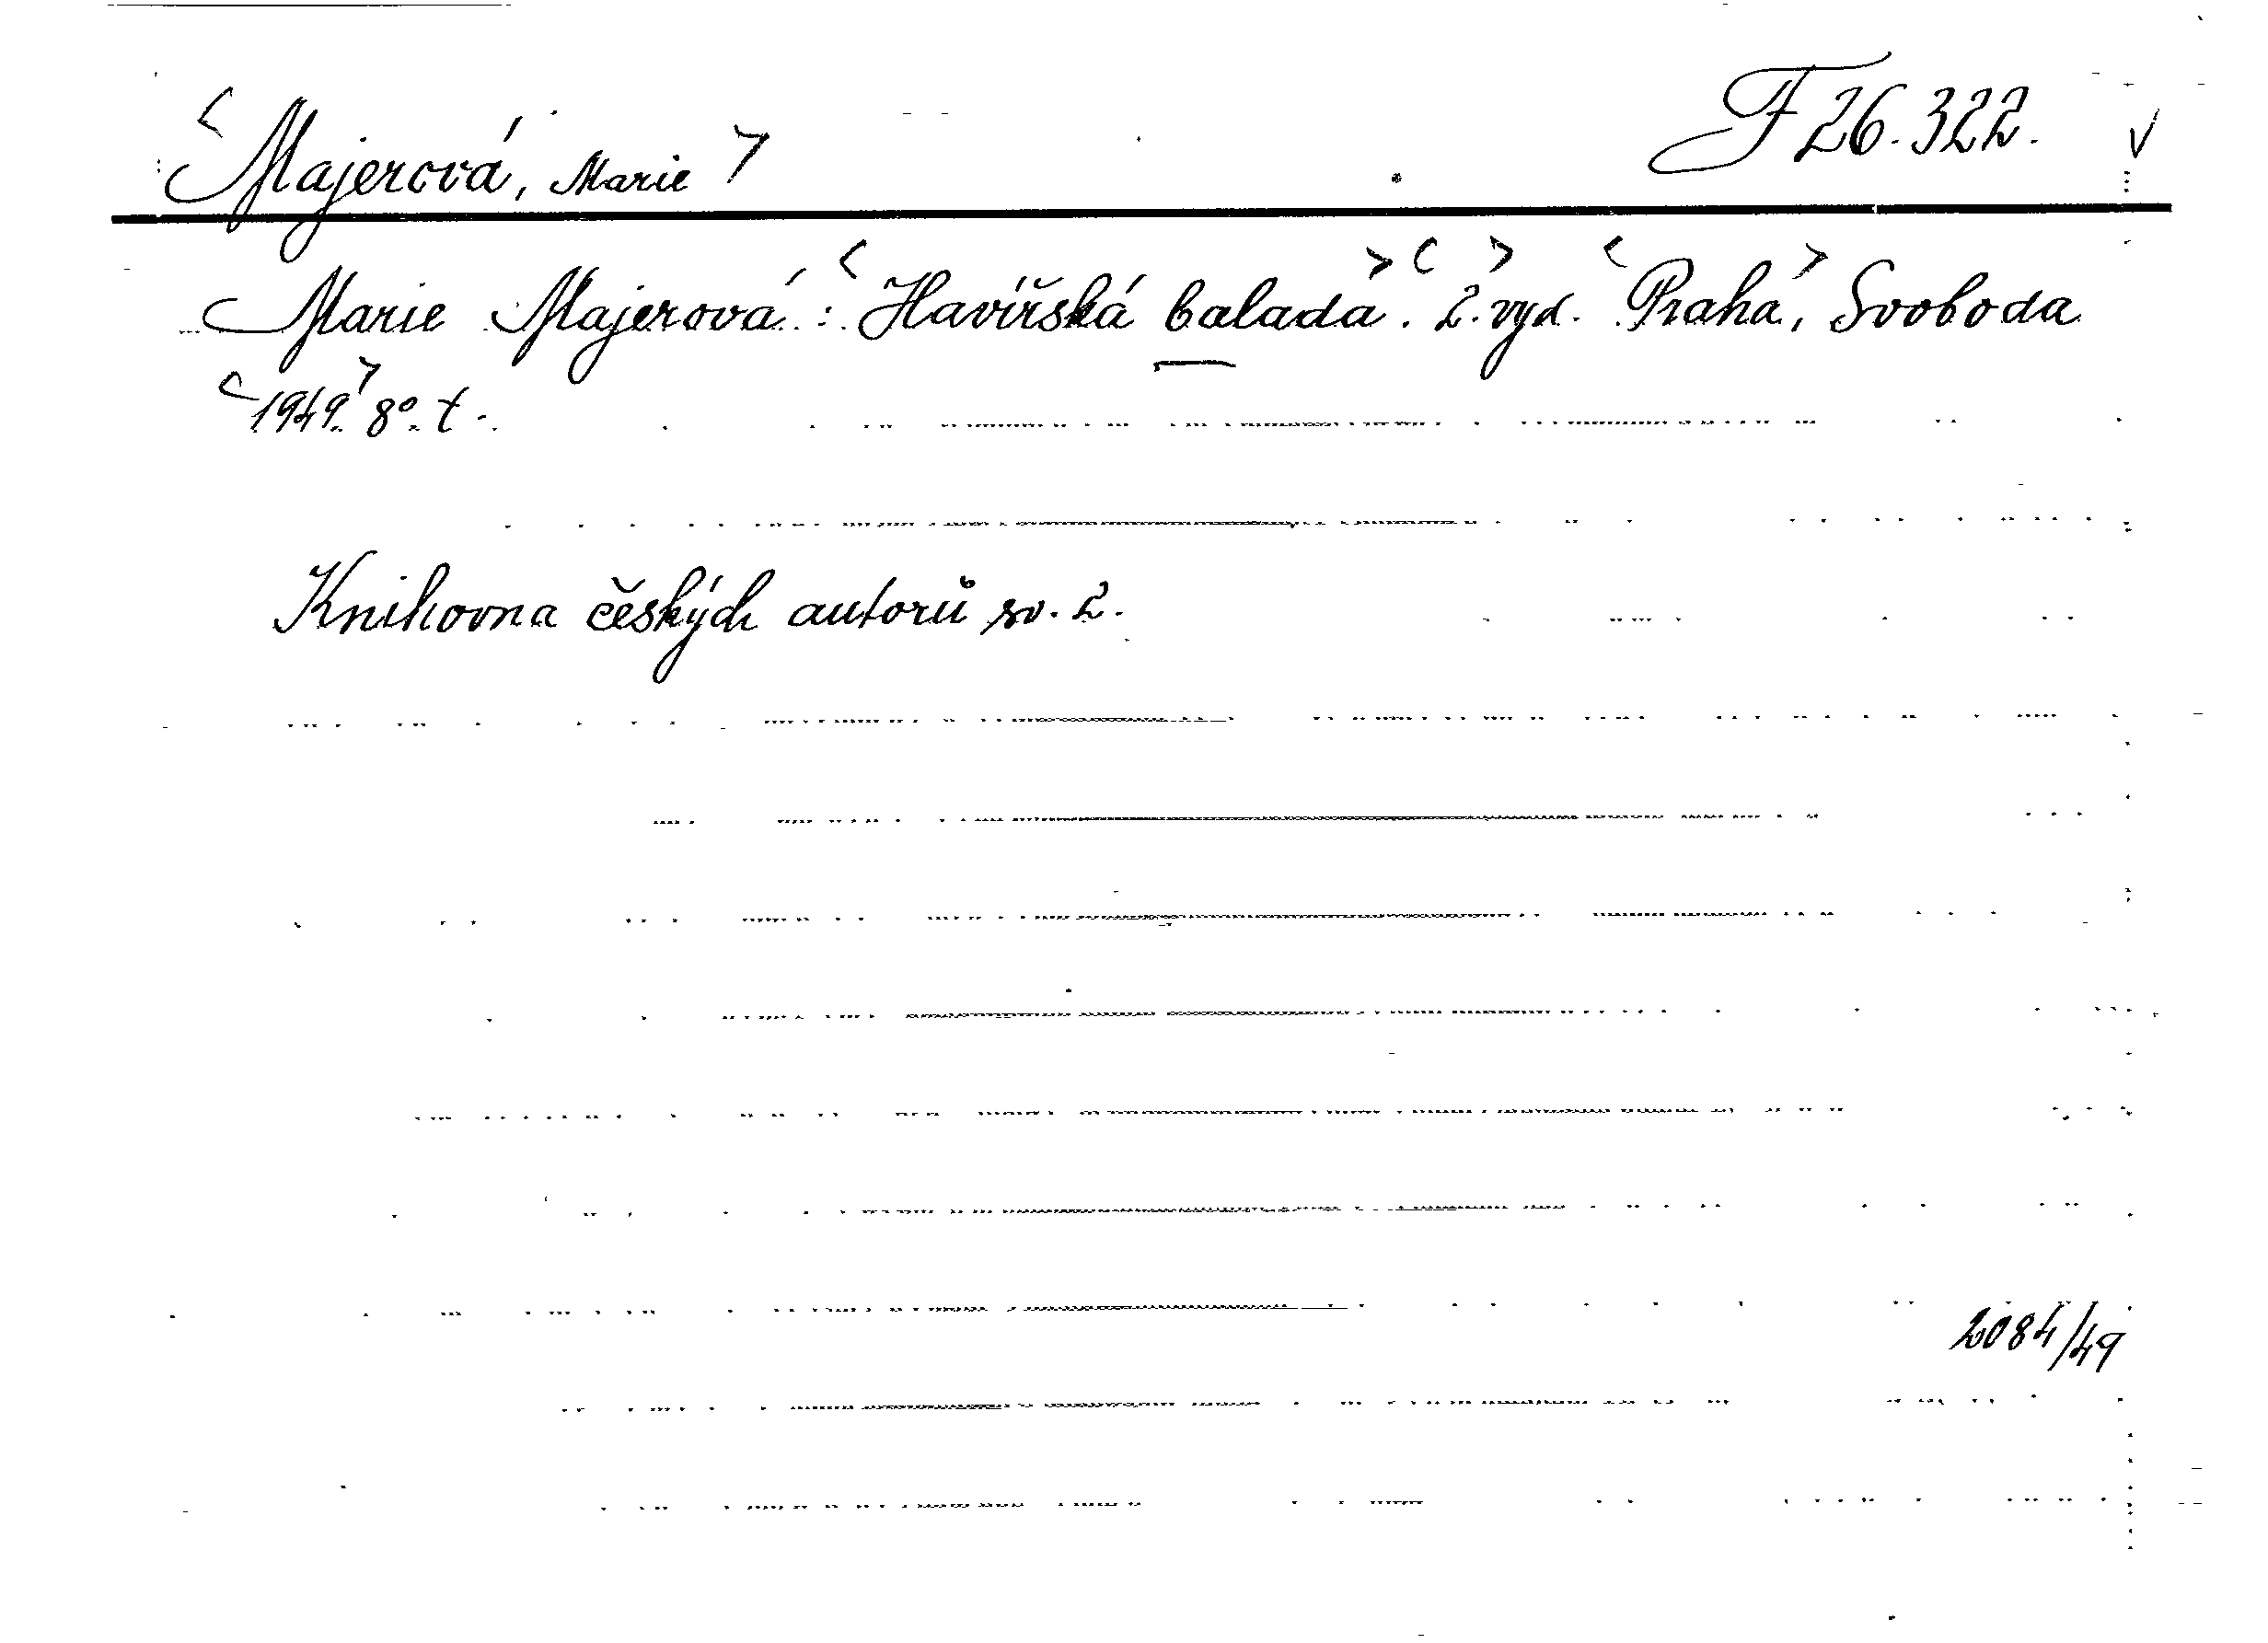 <Majerová, Marie> F 26.322. √
Marie Majerová: <Havířská balada>. <2.> vyd. <Praha>, Svoboda
<1949>. 8°. t.
Knihovna českých autorů sv. 2.
2084/49